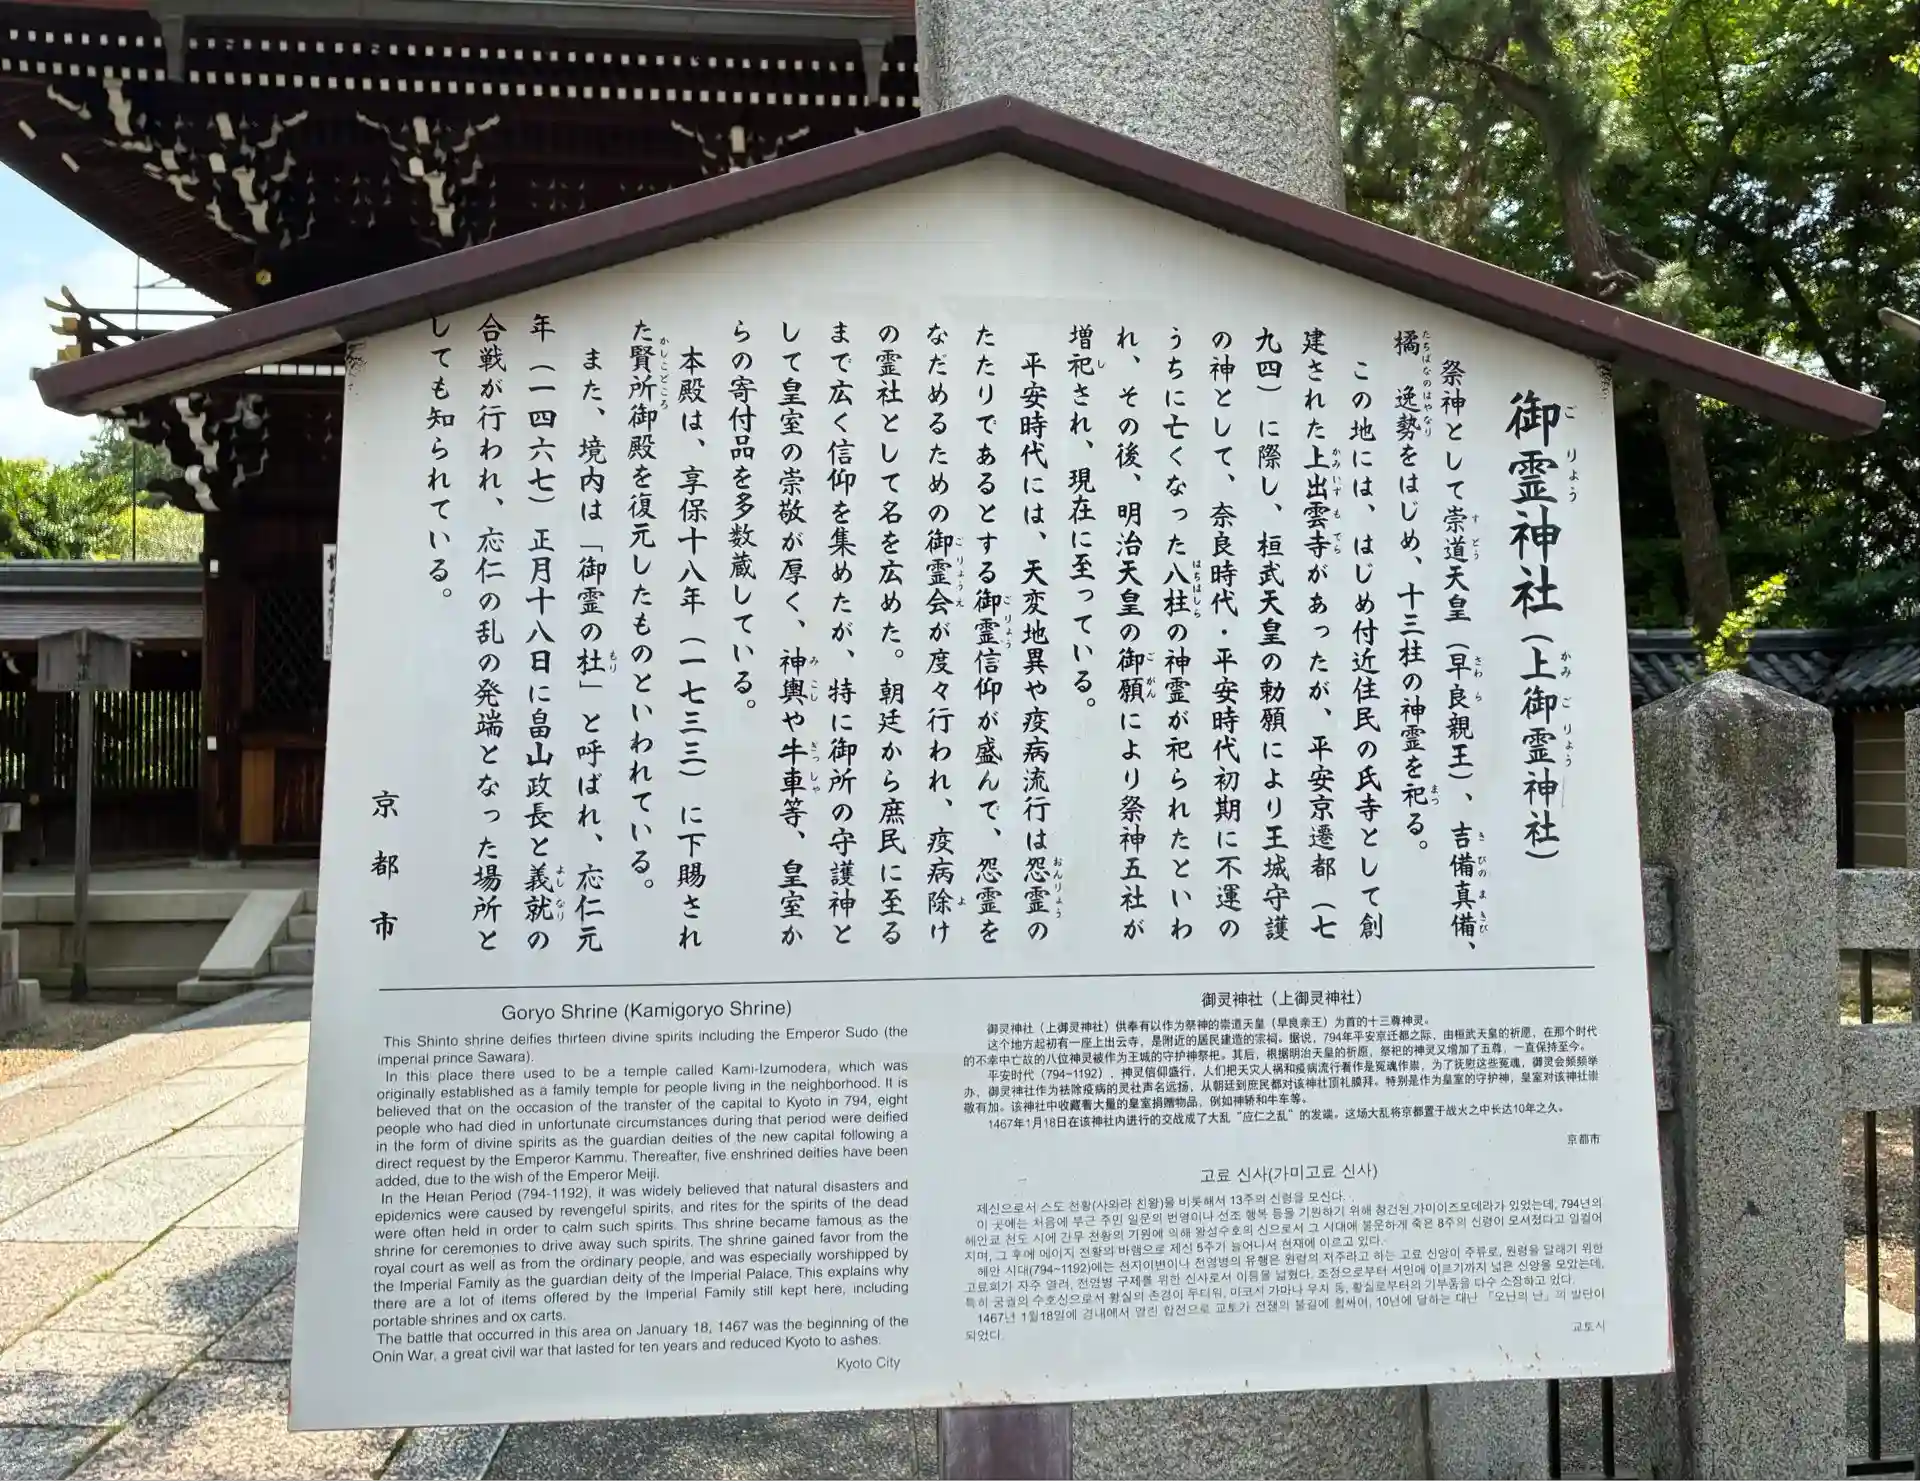 御霊神社（上御霊神社）
祭神として崇道天皇（早良親王）、吉備真備、
橘　逸勢をはじめ、十三柱の神霊を祀る。
この地には、はじめ付近住民の氏寺として創
建された上出雲寺があったが、平安京遷都（七
九四）に際し、桓武天皇の勅願により王城守護
の神として、奈良時代・平安時代初期に不運の
うちに亡くなった八柱の神霊が祀られたといわ
れ、その後、明治天皇の御願により祭神五社が
増祀され、現在に至っている。
平安時代には、天変地異や疫病流行は怨霊の
たたりであるとする御霊信仰が盛んで、怨霊を
なだめるための御霊会が度々行われ、疫病除け
の霊社として名を広めた。朝廷から庶民に至る
まで広く信仰を集めたが、特に御所の守護神と
して皇室の崇敬が厚く、神輿や牛車等、皇室か
らの寄付品を多数蔵している。
本殿は、享保十八年（一七三三）に下賜され
た賢所御殿を復元したものといわれている。
また、境内は「御霊の杜」と呼ばれ、応仁元
年（一四六七）正月十八日に畠山政長と義就の
合戦が行われ、応仁の乱の発端となった場所と
しても知られている。
京都市
Goryo Shrine (Kamigoryo Shrine)
This Shinto shrine deifies thirteen divine spirits including the Emperor Sudo (the
imperial prince Sawara).
In this place there used to be a temple called Kami-Izumodera, which was
originally established as a family temple for people living in the neighborhood. It is
believed that on the occasion of the transfer of the capital to Kyoto in 794, eight
people who had died in unfortunate circumstances during that period were deified
in the form of divine spirits as the guardian deities of the new capital following a
direct request by the Emperor Kammu. Thereafter, five enshrined deities have been
added, due to the wish of the Emperor Meiji.
In the Heian Period (794-1192), it was widely believed that natural disasters and
epidemics were caused by revengeful spirits, and rites for the spirits of the dead
were often held in order to calm such spirits. This shrine became famous as the
shrine for ceremonies to drive away such spirits. The shrine gained favor from the
royal court as well as from the ordinary people, and was especially worshipped by
the Imperial Family as the guardian deity of the Imperial Palace. This explains why
there are a lot of items offered by the Imperial Family still kept here, including
portable shrines and ox carts.
The battle that occurred in this area on January 18, 1467 was the beginning of the
Onin War, a great civil war that lasted for ten years and reduced Kyoto to ashes.
Kyoto City
御灵神社（上御灵神社）
御灵神社（上御灵神社）供奉有以作为祭神的崇道天皇（早良亲王）为首的十三尊神灵。
这个地方起初有一座上出云寺，是附近的居民建造的宗祠。据说，794年平安京迁都之际，由桓武天皇的祈愿，在那个时代
的不幸中亡故的八位神灵被作为王城的守护神祭祀。其后，根据明治天皇的祈愿，祭祀的神灵又增加了五尊，一直保持至今。
平安时代（794~1192），神灵信仰盛行，人们把天灾人祸和疫病流行看作是冤魂作祟，为了抚慰这些冤魂，御灵会频频举
办，御灵神社作为祛除疫病的灵社声名远扬，从朝廷到庶民都对该神社顶礼膜拜。特别是作为皇室的守护神，皇室对该神社崇
敬有加。该神社中收藏着大量的皇室捐赠物品，例如神轿和牛车等。
1467年1月18日在该神社内进行的交战成了大乱“应仁之乱”的发端。这场大乱将京都置于战火之中长达10年之久。
京都市
고료 신사(가미고료 신사)
제신으로서 스도 천황(사와라 친왕)을 비롯해서 13주의 신령을 모신다.
이 곳에는 처음에 부근 주민 일문의 번영이나 선조 행복 등을 기원하기 위해 창건된 가미이즈모데라가 있었는데, 794년의
헤안쿄 천도 시에 간무 천황의 기원에 의해 왕성수호의 신으로서 그 시대에 불운하게 죽은 8주의 신령이 모셔졌다고 일컬어
지며, 그 후에 메이지 천황의 바램으로 제신 5주가 늘어나서 현재에 이르고 있다.
헤안 시대(794~1192)에는 천지이변이나 전염병의 유행은 원령의 저주라고 하는 고료 신앙이 주류로, 원령을 달래기 위한
고료회가 자주 열려, 전염병 구제를 위한 신사로서 이름을 넓혔다. 조정으로부터 서민에 이르기까지 넓은 신앙을 모았는데,
특히 궁궐의 수호신으로서 황실의 존경이 두터워, 미코시 가마나 우차 등, 황실로부터의 기부품을 다수 소장하고 있다.
1467년 1월18일에 경내에서 열린 합전으로 교토가 전쟁의 불길에 휩싸여, 10년에 달하는 대난 「오닌의 난」의 발단이
되었다.
교토시